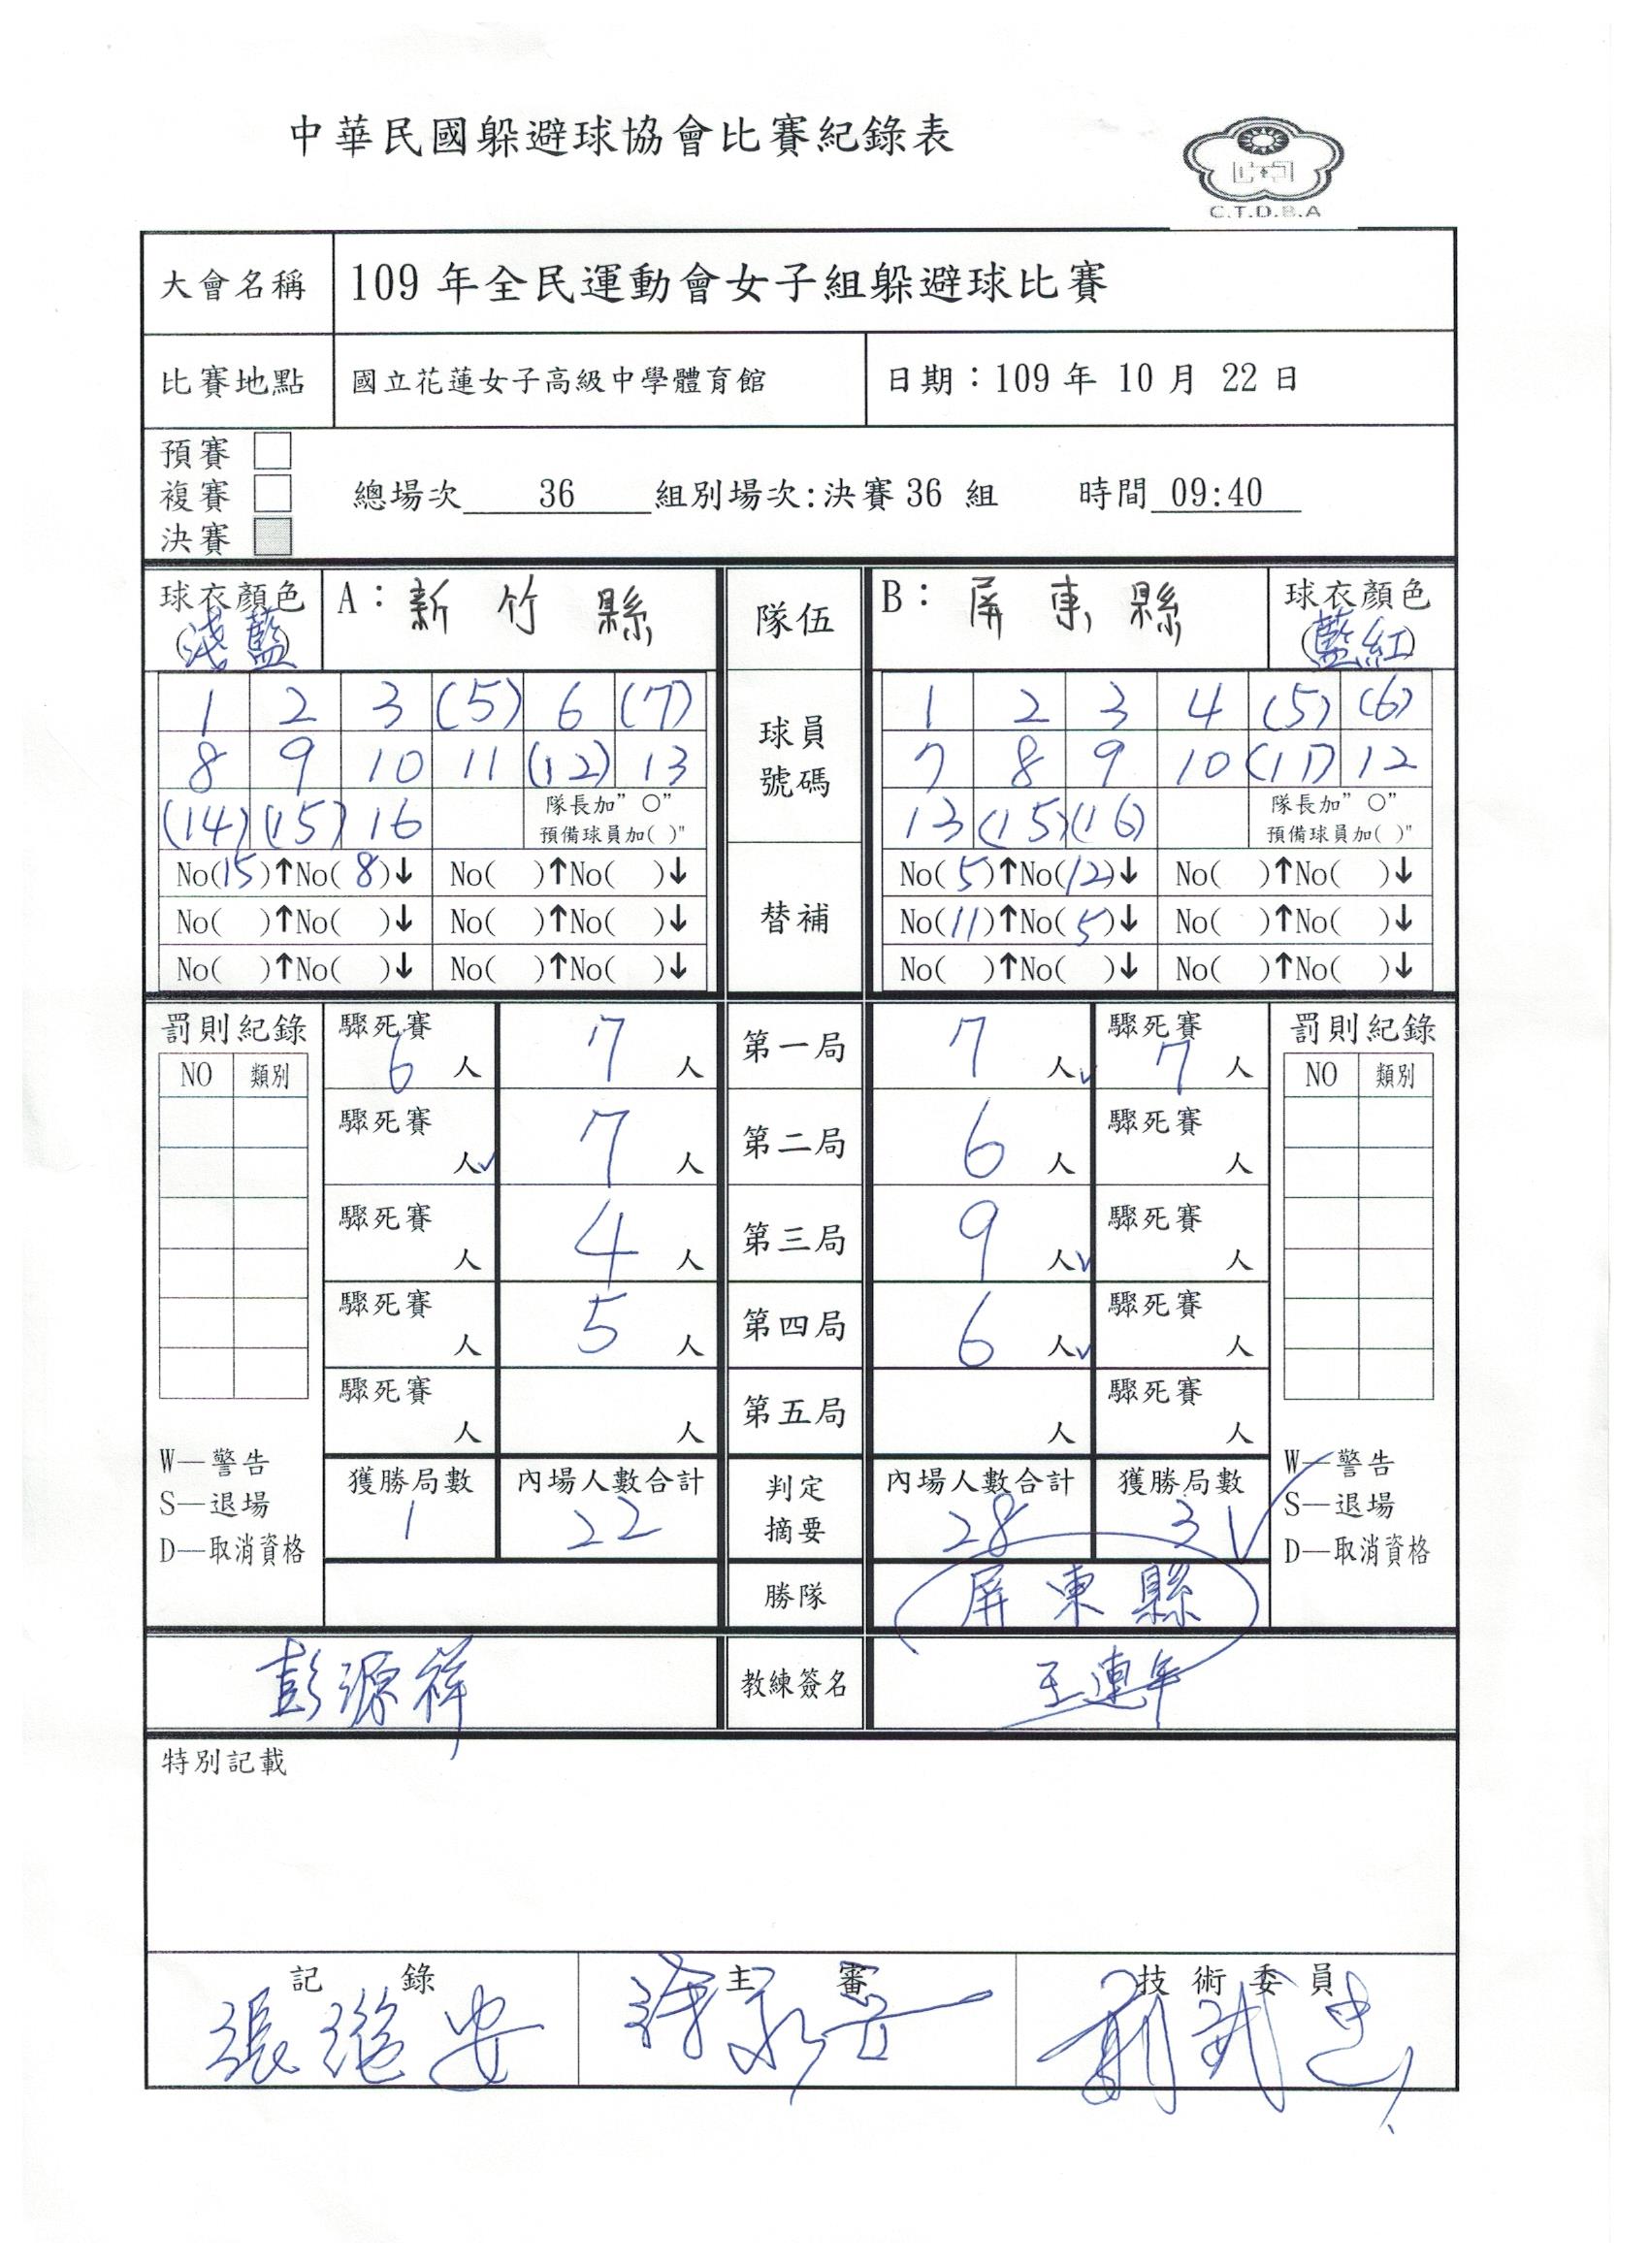 中華民國躲避球協會比賽紀錄表
C.T.D.B.A
大會名稱 109 年全民運動會女子組躲避球比賽
比賽地點 國立花蓮女子高級中學體育館 日期：109 年 10 月 22 日
預賽
複賽 總場次 36 組別場次:決賽 36 組 時間 09:40
決賽
球衣顏色 A： 新竹縣 隊伍 B： 屏東縣 球衣顏色
(淺藍) (藍紅)
1 2 3 (5) 6 (7) 球員號碼 1 2 3 4 (5) (6)
8 9 10 11 (12) 13 7 8 9 10 (11) 12
(14) (15) 16 隊長加"○" 預備球員加( )" 13 (15) (16) 隊長加"○" 預備球員加( )"
No(15)↑No(8)↓ No( )↑No( )↓ 替補 No(5)↑No(12)↓ No( )↑No( )↓
No( )↑No( )↓ No( )↑No( )↓ No(11)↑No(5)↓ No( )↑No( )↓
No( )↑No( )↓ No( )↑No( )↓ No( )↑No( )↓ No( )↑No( )↓
罰則紀錄 驟死賽 6 人 7 人 第一局 7 人✓ 驟死賽 7 人 罰則紀錄
NO 類別 NO 類別
驟死賽 人✓ 7 人 第二局 6 人 驟死賽 人
驟死賽 人 4 人 第三局 9 人✓ 驟死賽 人
驟死賽 人 5 人 第四局 6 人✓ 驟死賽 人
驟死賽 人 人 第五局 人 驟死賽 人
W—警告 W—警告
S—退場 S—退場
D—取消資格 D—取消資格
獲勝局數 內場人數合計 判定摘要 內場人數合計 獲勝局數
1 22 28 3 ✓
勝隊 屏東縣
彭源祥 教練簽名 王連年
特別記載
記錄 主審 技術委員
張繼安